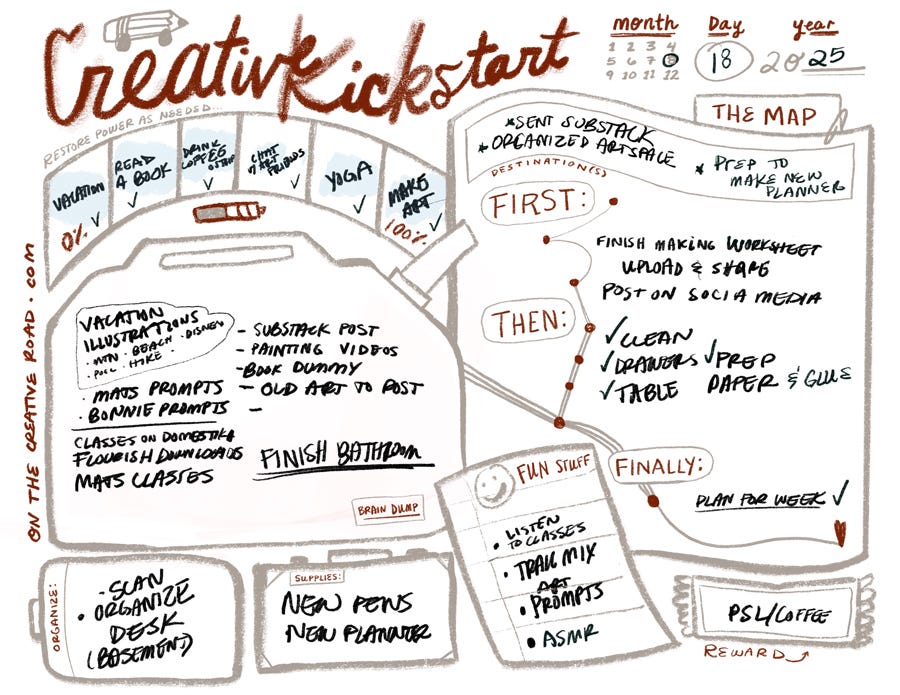 Creative Kickstart
month
1 2 3 4
5 6 7 8
9 10 11 12
Day
18
year
2025
RESTORE POWER AS NEEDED...
VACATION ✓
0%
READ
A BOOK
✓
DRINK
COFFEE
✓
CHAT
W/ ART
FRIENDS
✓
YOGA
✓
MAKE
ART
✓
100%
ON THE CREATIVE ROAD.COM
VACATION
ILLUSTRATIONS
· MTN · BEACH · DISNEY
· POOL · HIKE ·
· MATS PROMPTS
· BONNIE PROMPTS
CLASSES ON DOMESTIKA
FLOURISH DOWNLOADS
MATS CLASSES
- SUBSTACK POST
- PAINTING VIDEOS
- BOOK DUMMY
- OLD ART TO POST
-
FINISH BATHROOM
BRAIN DUMP
THE MAP
* SENT SUBSTACK
* ORGANIZED ARTSPACE
* PREP TO
MAKE NEW
PLANNER
DESTINATION(S)
FIRST:
FINISH MAKING WORKSHEET
UPLOAD & SHARE
POST ON SOCIA MEDIA
THEN:
✓ CLEAN
✓ DRAWERS ✓ PREP
✓ TABLE PAPER & GLUE
FINALLY:
PLAN FOR WEEK ✓
FUN STUFF
· LISTEN
TO CLASSES
· TRAIL MIX
ART
· PROMPTS
· ASMR
ORGANIZE:
· SCAN
· ORGANIZE
DESK
(BASEMENT)
SUPPLIES:
NEW PENS
NEW PLANNER
PSL/COFFEE
REWARD